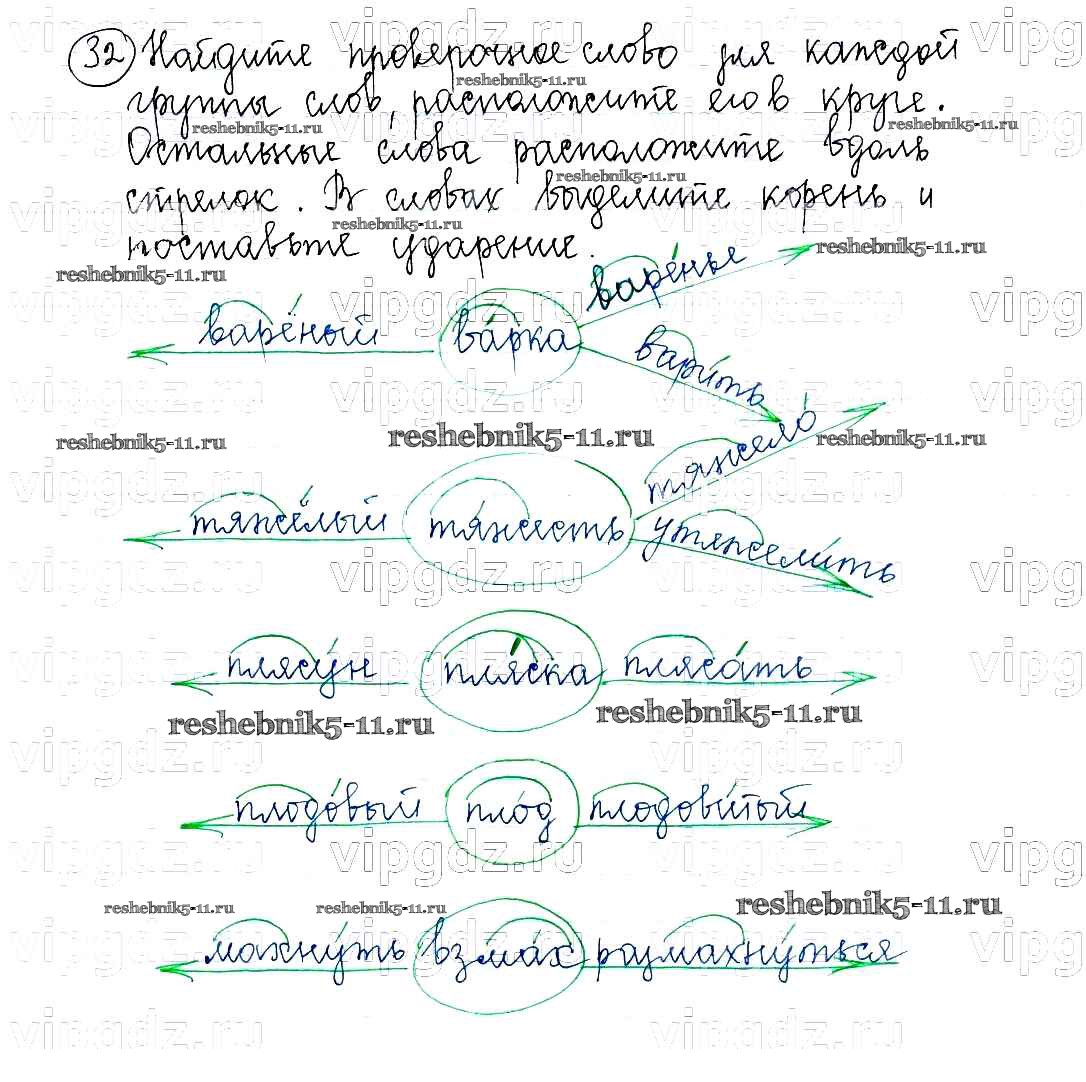 32 Найдите проверочное слово для каждой
группы слов, расположите его в круге.
Остальные слова расположите вдоль
стрелок. В словах выделите корень и
поставьте ударение.
варе́нье
варёный ва́рка
вари́ть
тяжело́
тяжёлый тя́жесть
утяжели́ть
плясу́н пля́ска пляса́ть
плодо́вый пло́д плодови́тый
махну́ть взма́х размахну́ться
reshebnik5-11.ru
vipgdz.ru